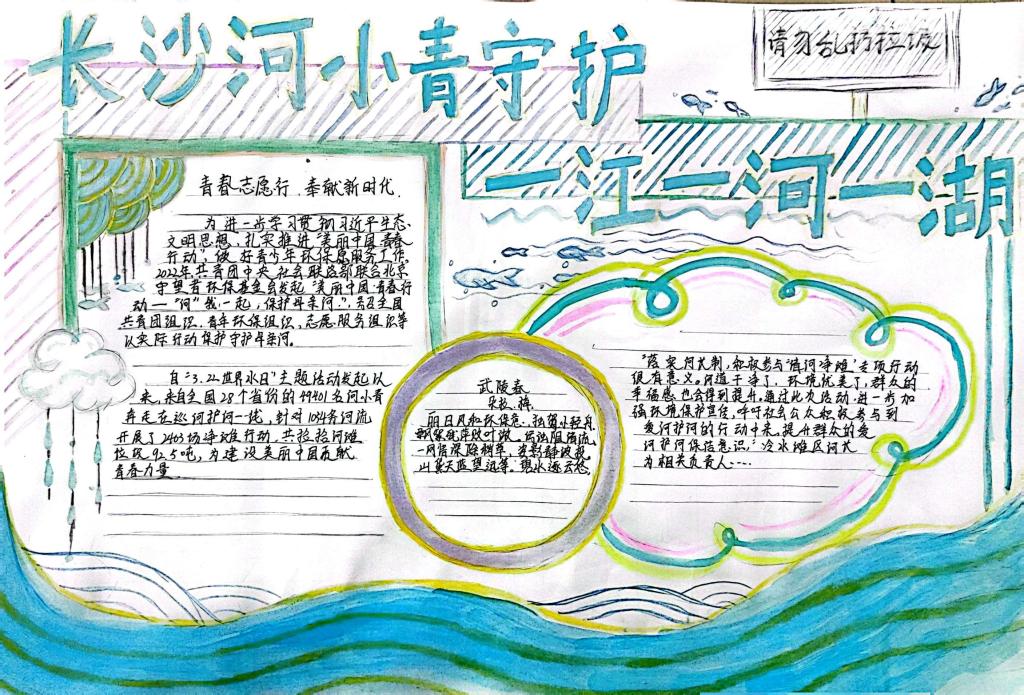 长沙河小青守护
请勿乱扔垃圾
一江一河一湖
青春志愿行 奉献新时代
为进一步学习贯彻习近平生态
文明思想，扎实推进“美丽中国·青春
行动”，做好青少年环保志愿服务工作，
2022年共青团中央社会联络部联合北京
守望者环保基金会发起“美丽中国·青春行
动——“河”我一起，保护母亲河”，号召全国
共青团组织、青年环保组织、志愿服务组织等
以实际行动保护守护母亲河。
自“3.22世界水日”主题活动发起以
来，来自全国28个省份的19401名河小青
奔走在巡河护河一线，针对1084条河流
开展了2403场净滩行动，共捡拾河滩
垃圾92.5吨，为建设美丽中国贡献
青春力量
武陵春
丽日风和环保急
山莫天蓝望
“落实河长制，积极参与‘清河净滩’专项行动
很有意义。河道干净了，环境优美了，群众的
幸福感也会得到提升。通过此次活动，进一步加
强环境保护宣传，呼吁社会公众积极参与到
爱河护河的行动中来，提升群众的爱
河护河保洁意识。”冷水滩区河长
为相关负责人……